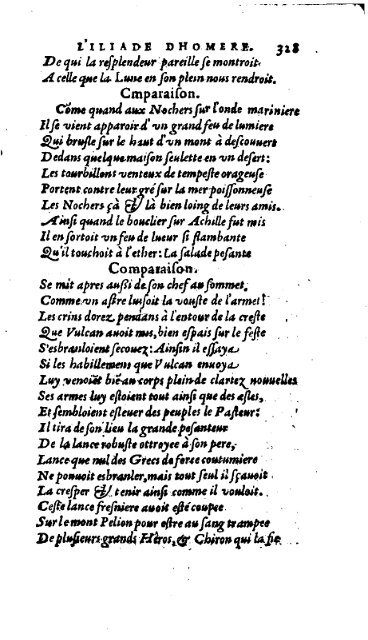 L'ILIADE DHOMERE. 328
De qui la resplendeur pareille se montroit
A celle que la Lune en son plein nous rendroit.
Cmparaison.
Cõme quand aux Nochers sur l'onde mariniere
Il se vient apparoir d'vn grand feu de lumiere
Qui brusle sur le haut d'vn mont à descouuert
Dedans quelque maison seulette en vn desert:
Les tourbillons venteux de tempeste orageuse
Portent contre leur gré sur la mer poissonneuse
Les Nochers çà & là bien loing de leurs amis.
Ainsi quand le bouclier sur Achille fut mis
Il en sortoit vn feu de lueur si flambante
Qu'il touchoit à l'ether: La salade pesante
Comparaison.
Se mit apres aussi de son chef au sommet,
Comme vn astre luisoit la vouste de l'armet!
Les crins dorez, pendans à l'entour de la creste
Que Vulcan auoit mis, bien espais sur le feste
S'esbranloient secouez: Ainsin il essaya
Si les habillemens que Vulcan enuoya
Luy venoiēt biē au corps plein de clartez nouuelles
Ses armes luy estoient tout ainsi que des aesles,
Et sembloient esleuer des peuples le Pasteur:
Il tira de son lieu la grande pesanteur
De la lance robuste ottroyee à son pere,
Lance que nul des Grecs de force coutumiere
Ne pouuoit esbranler, mais tout seul il sçauoit
La cresper & tenir ainsi comme il vouloit.
Ceste lance fresniere auoit esté coupee
Sur le mont Pelion pour estre au sang trampee
De plusieurs grands Heros, & Chiron qui la fie